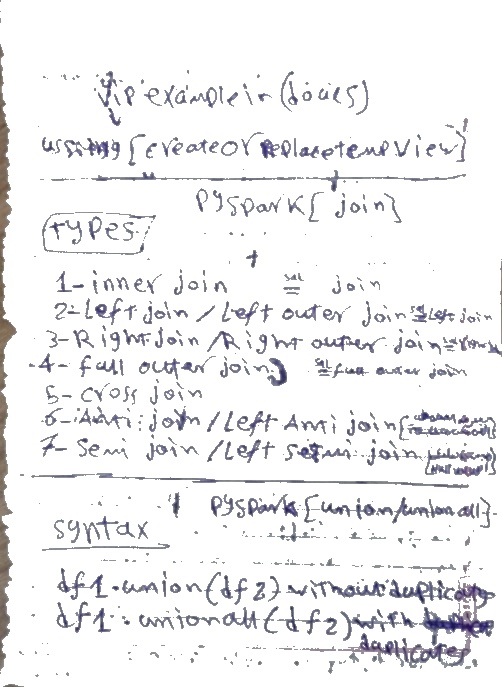 Vip example in (docies)
ussing [createOrReplacetempView]
PYSPark [join]
types
1- inner join = sql join
2- Left join / Left outer join = sql Left join
3- Right join / Right outher join =
4- full outer join = sql full outer join
5- cross join
6- Anti join / Left Anti join
7- Semi join / Left Semi join
PYSPark [union/union all]
syntax
df1.union(df2) without duplicates
df1.unionall(df2) with
duplicates